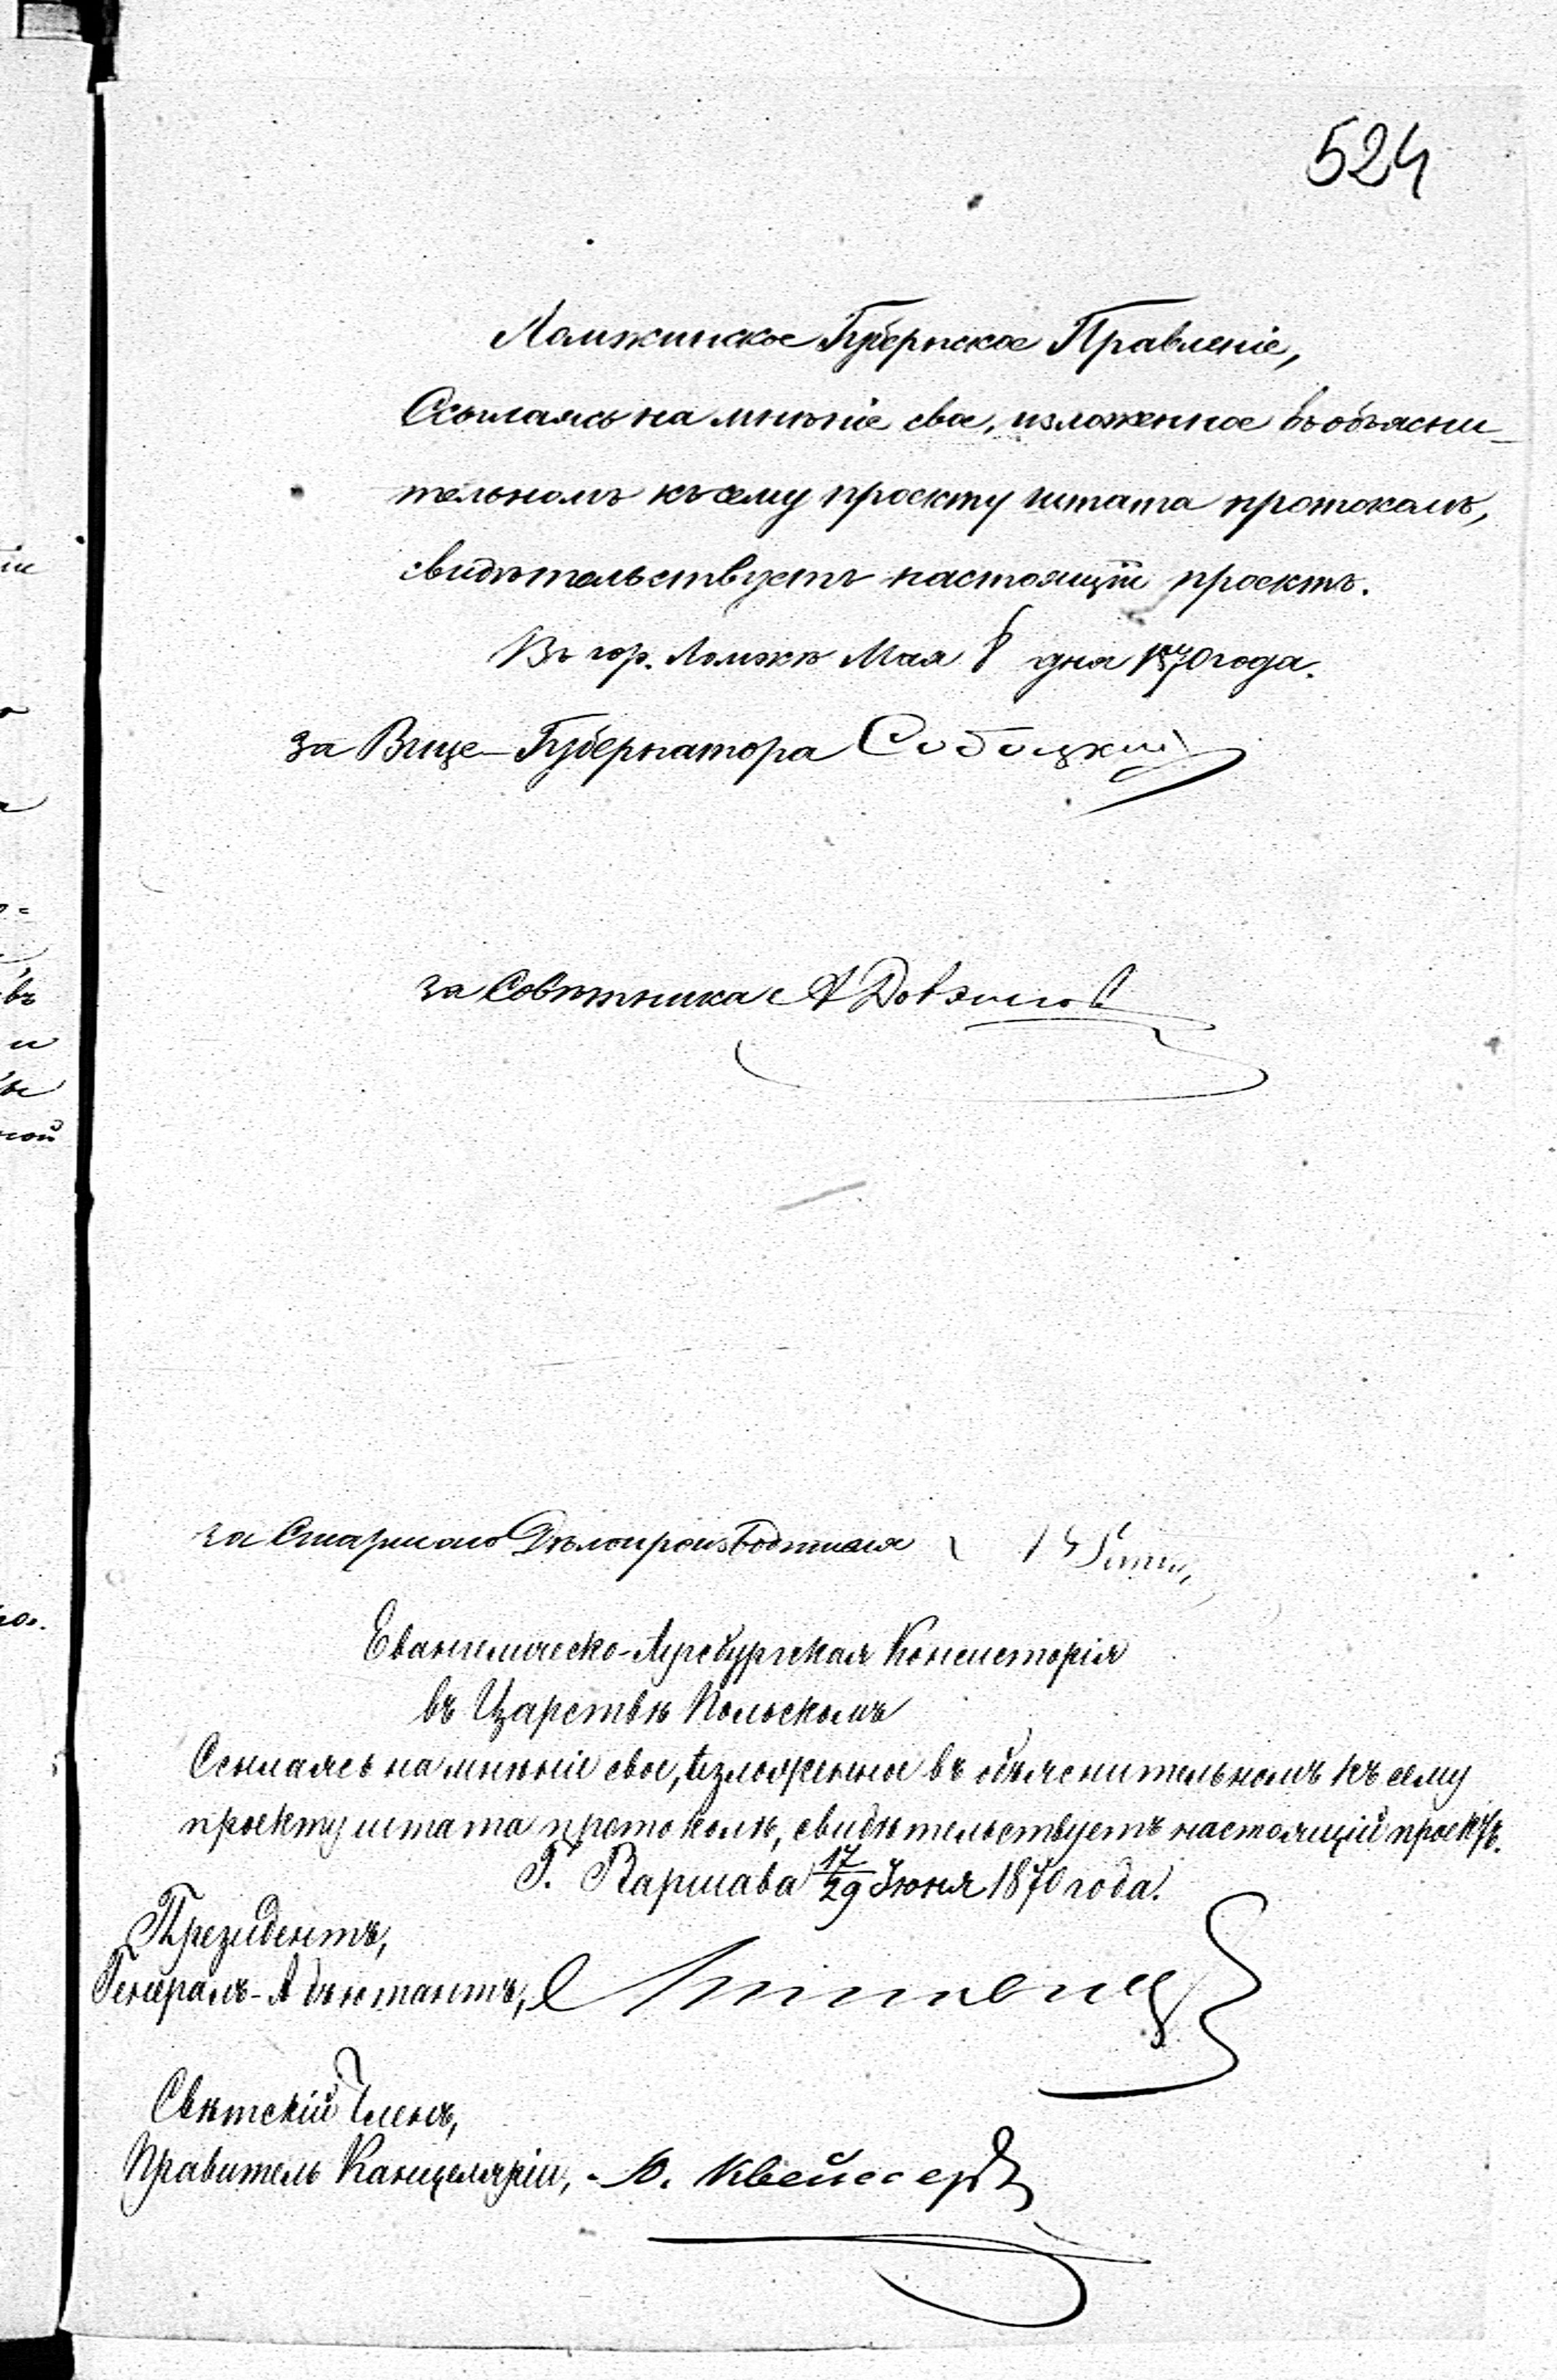 524
Ломжинское Губернское Правленіе,
Ссылаясь на мнѣніе свое, изложенное въ объясни-
тельномъ къ сему проекту штата протоколѣ,
свидѣтельствуетъ настоящій проектъ.
Въ гор. Ломжѣ Мая 8 дня 1870 года.
за Вице-Губернатора Собоцкій
за Совѣтника А
за Старшаго Дѣлопроизводителя
Евангелическо-Аугсбургская Консисторія
въ Царствѣ Польскомъ
Ссылаясь на мнѣніе свое, изложенное въ объяснительномъ къ сему
проекту штата протоколѣ, свидѣтельствуетъ настоящій проектъ.
Г. Варшава 17/29 Іюня 1870 года.
Президентъ,
Генералъ-Адъютантъ,
Свѣтскій Членъ,
Правитель Канцеляріи,